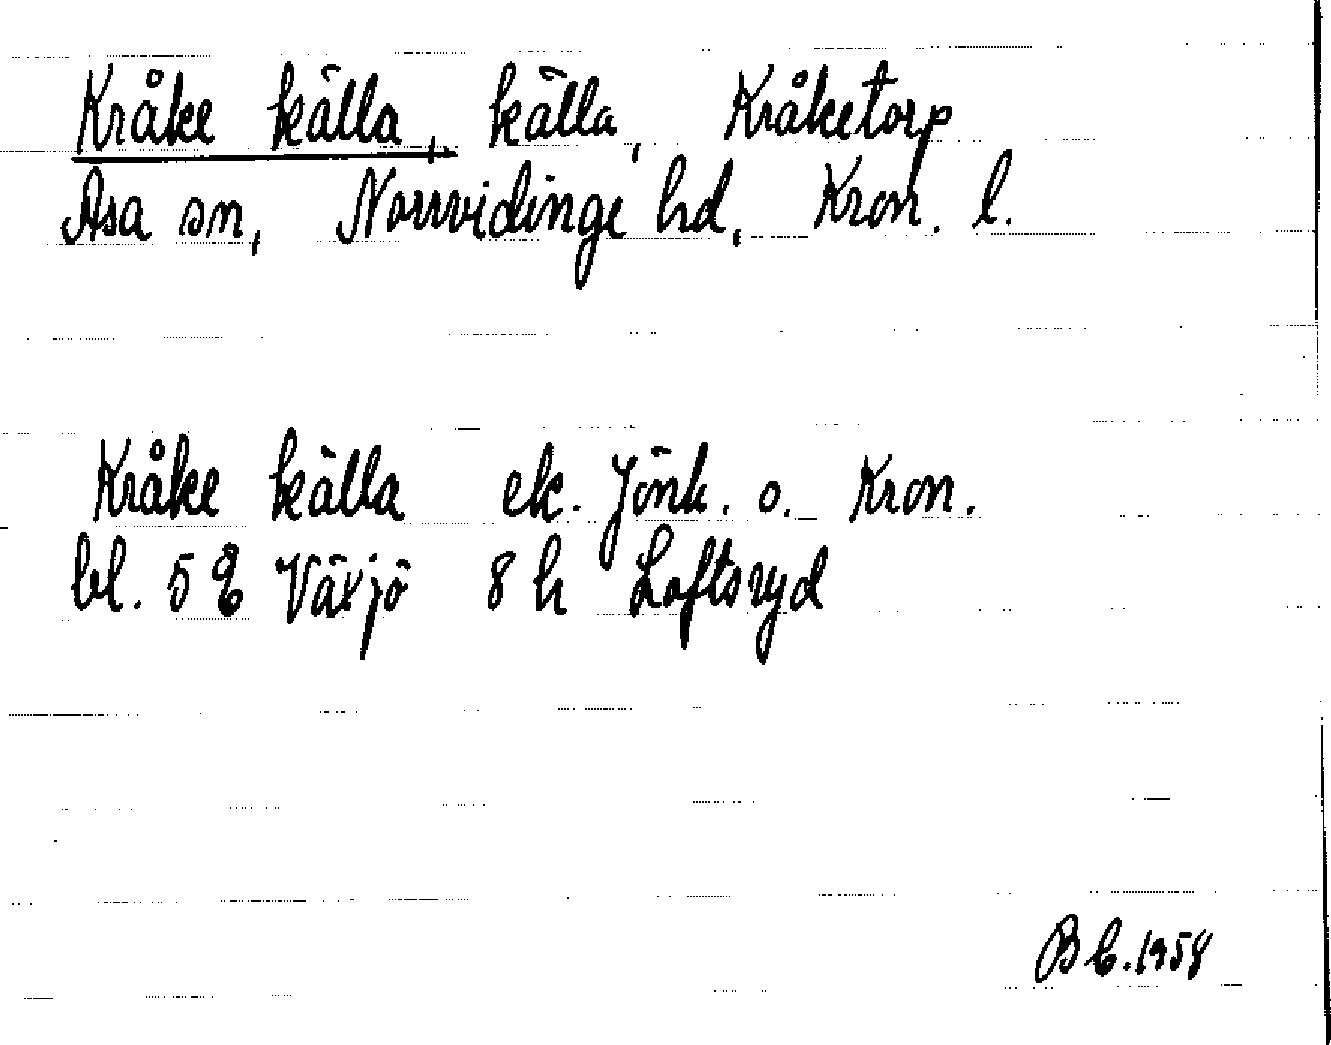 Kråke källa, källa, Kråketorp
Asa sn, Norrvidinge hd, Kron. l.
Kråke källa ek. Jönk. o. Kron.
bl. 5 E Växjö 8 h Loftsryd
B C. 1958